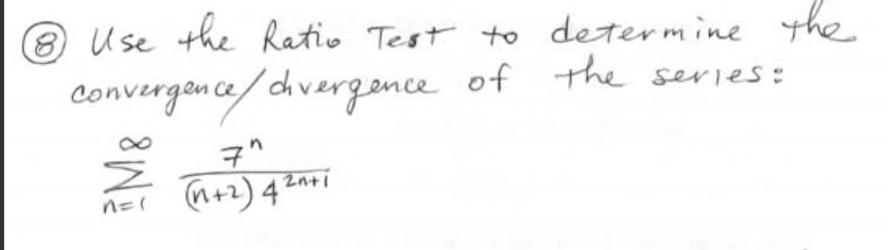 ⑧ Use the Ratio Test to determine the
convergence/divergence of the series:
∑_{n=1}^{∞} 7^n / ((n+2) 4^{2n+1})